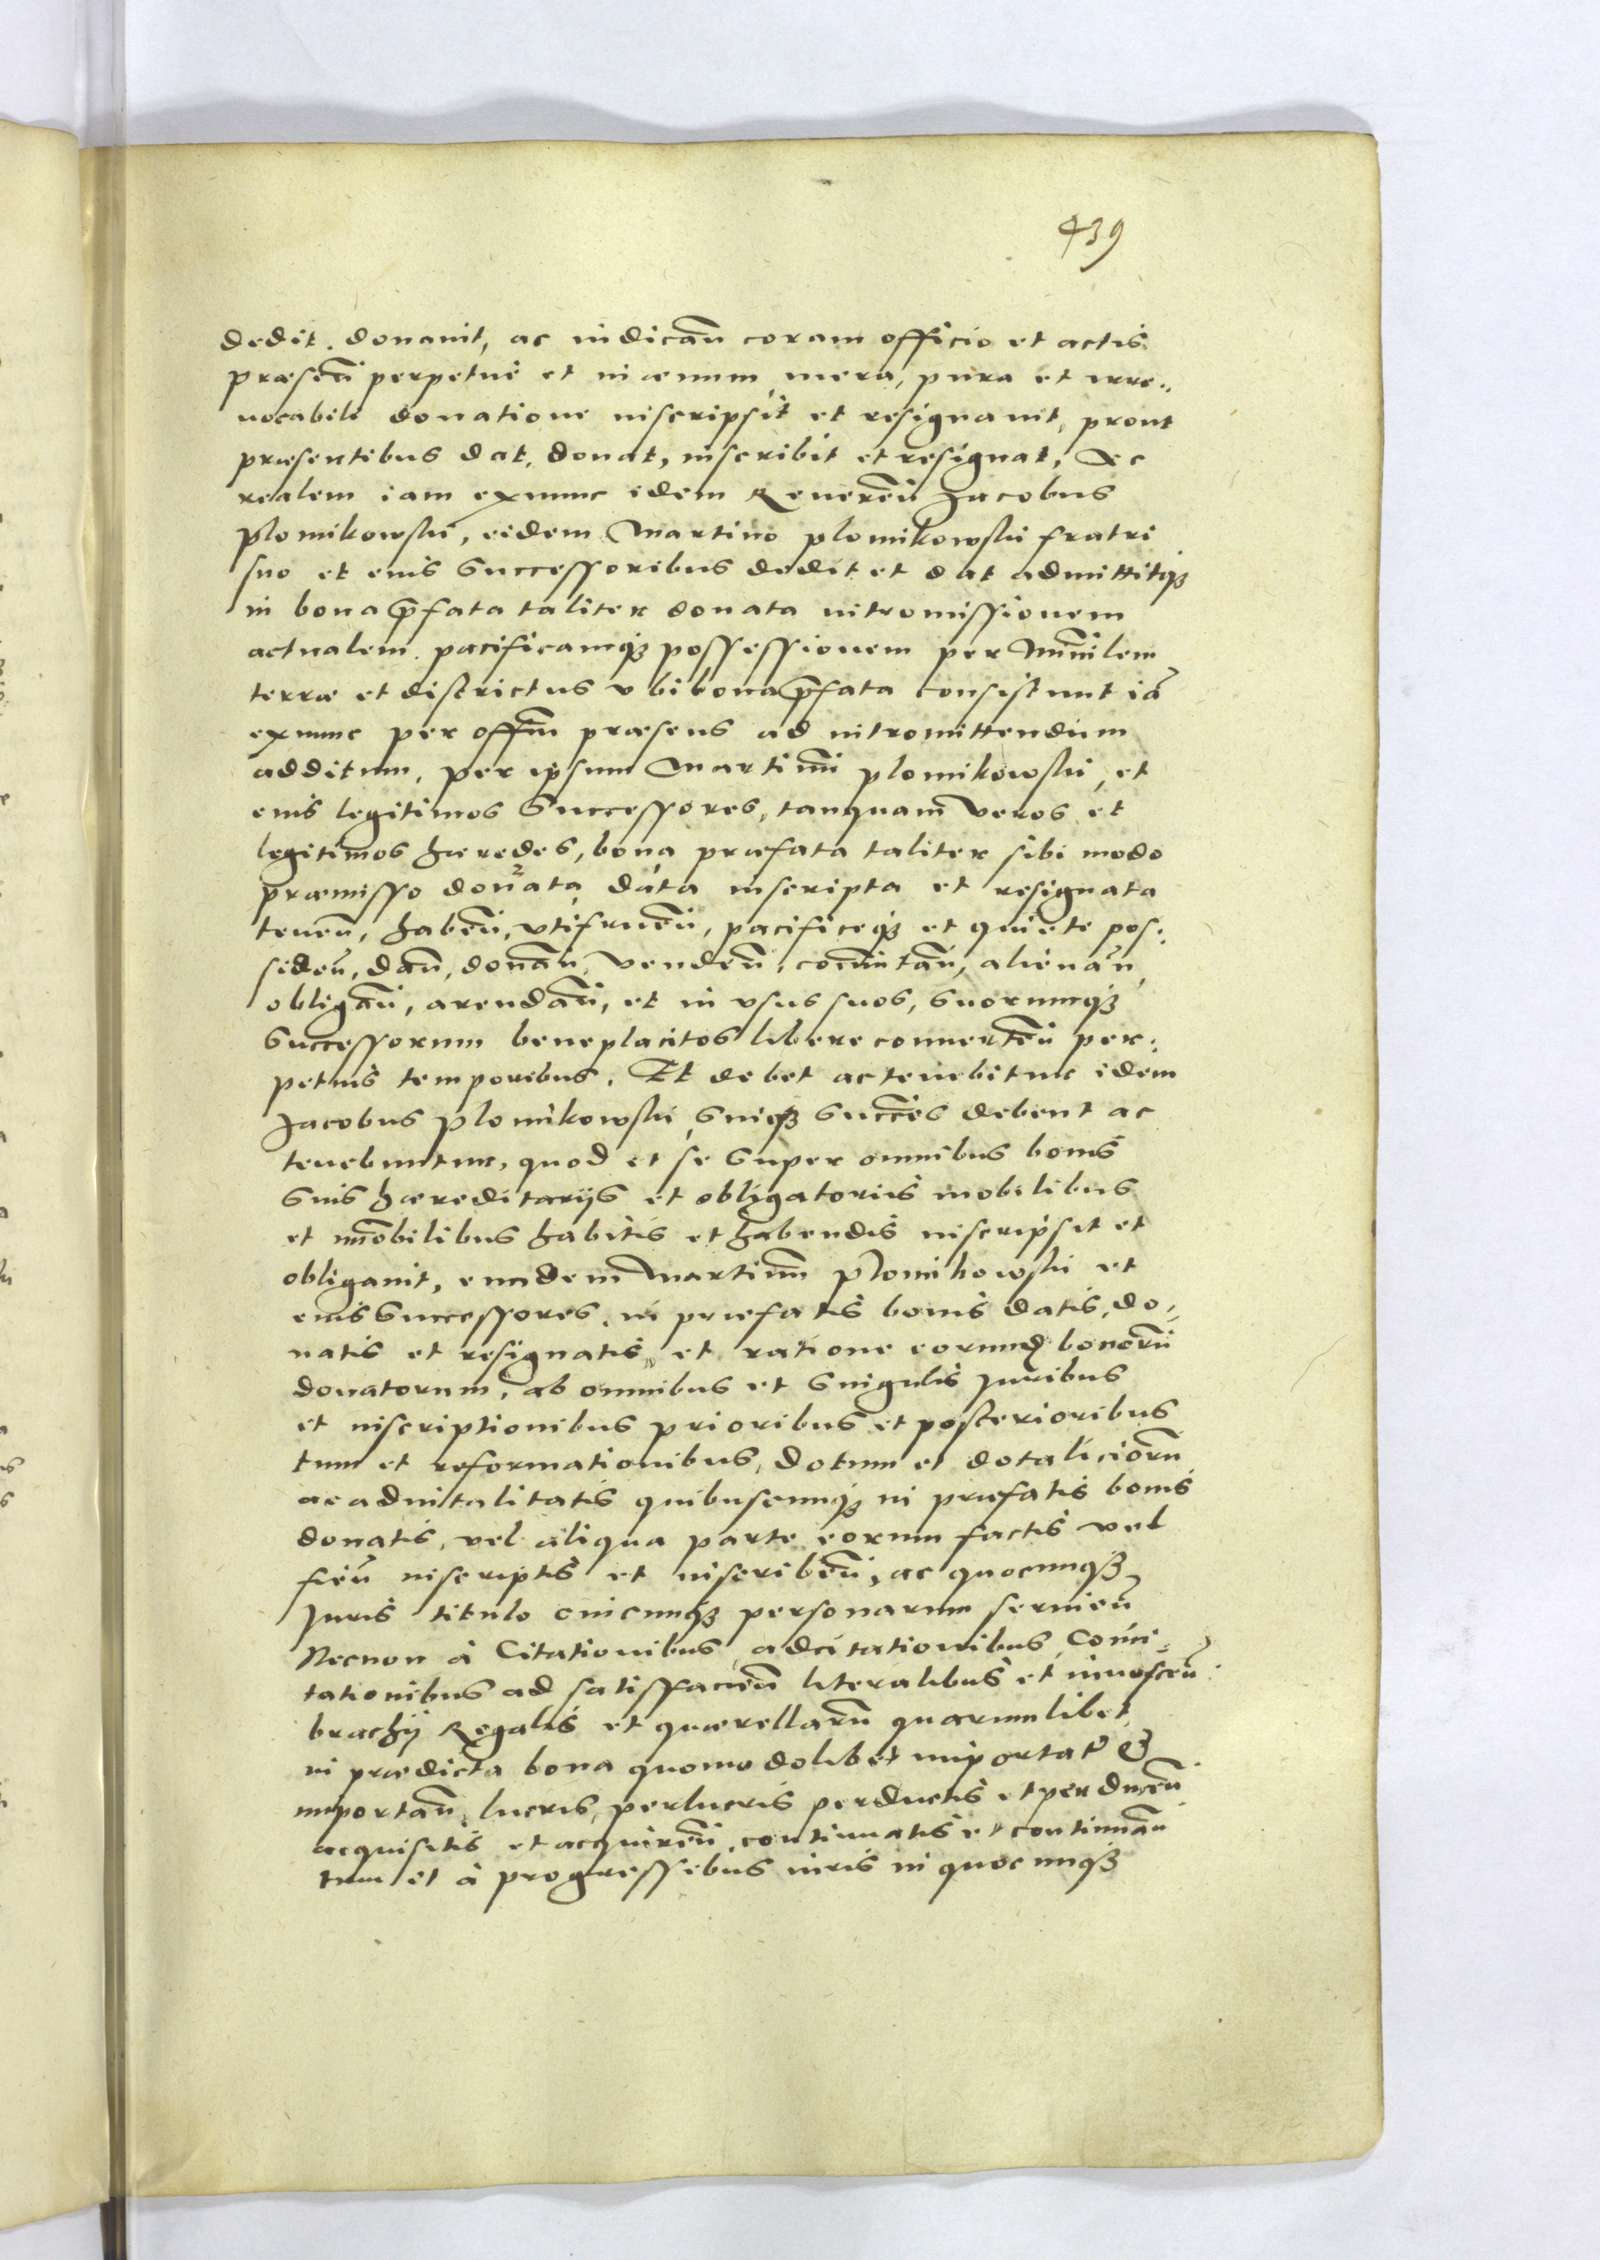 439
dedit, donauit, ac iudicaū coram officio et actis
præseū perpetue et in æuum mera, pura et irre„
uocabili donatione inscripsit et resignauit, prout
præsentibus dat, donat, inscribit et resignat, Ac
realem iam exnunc idem Reuereñ Jacobus
Plomikowski, eidem Martino Plomikowski fratri
suo et eius Successoribus dedit et dat admittitqȝ
in bona p̄fata taliter donata intromissionem
actualem pacificamqȝ possessionem per Min̄ilem
terræ et districtus vbi bona p̄fata consistunt iā
exnunc per off̄m præsens ad intromittendum
additum, per ipsum Martinū Plomikowski, et
eius legitimos Successores, tanquam veros et
legitimos hæredes, bona præfata taliter sibi modo
præmisso donata, data inscripta et resignata
teneñ, habeñ, vtifrueñ, pacificeqȝ et quiete pos„
sideñ, dañ, donañ, vendeñ, com̄utañ, alienañ,
obligañ, arendañ, et in vsus suos, suorumqȝ
Successorum beneplacitos libere conuerteñ per„
petuis temporibus. Et debet ac tenebitur idem
Jacobus Plomikowski, suiqȝ Succ̄es debent ac
tenebuntur, quod et se super omnibus bonis
suis hæreditarijs et obligatorijs mobilibus
et im̄obilibus habitis et habendis inscripsit et
obligauit, eundem Martinū Plomikowski et
eius Successores, in præfatis bonis datis, do„
natis et resignatis, et ratione eorund bonorū
donatorum, ab omnibus et singulis Juribus
et inscriptionibus prioribus et posterioribus
tum et reformationibus, dotum et dotaliciorū
ac aduitalitatis quibuscumqȝ in præfatis bonis
donatis, vel aliqua parte eorum factis vel
fieñ inscriptis et inscribeñ, ac quocumqȝ
Juris titulo cuicumqȝ personarum seruieñ
Necnon à Citationibus, adcitationibus, Conci„
tationibus ad satisfacieñ literalibus et innosceñ
brachij Regalis et quærellarū quarumlibet
in prædicta bona quomodolibet importat̄ et
importañ, lucris, perlucris perductis et perduceñ
acquisitis et acquireñ, continuatis et continuañ
tum et à progressibus iuris in quocumqȝ